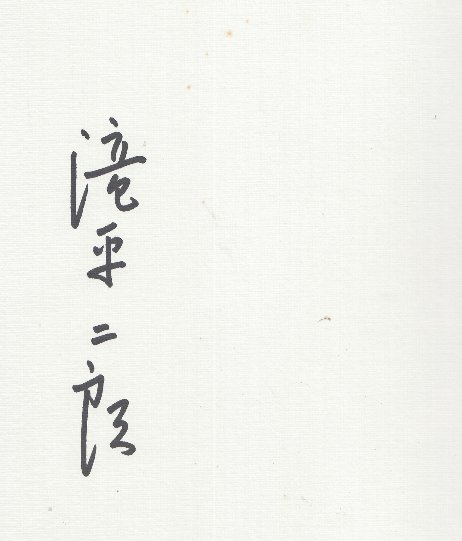 滝平二郎